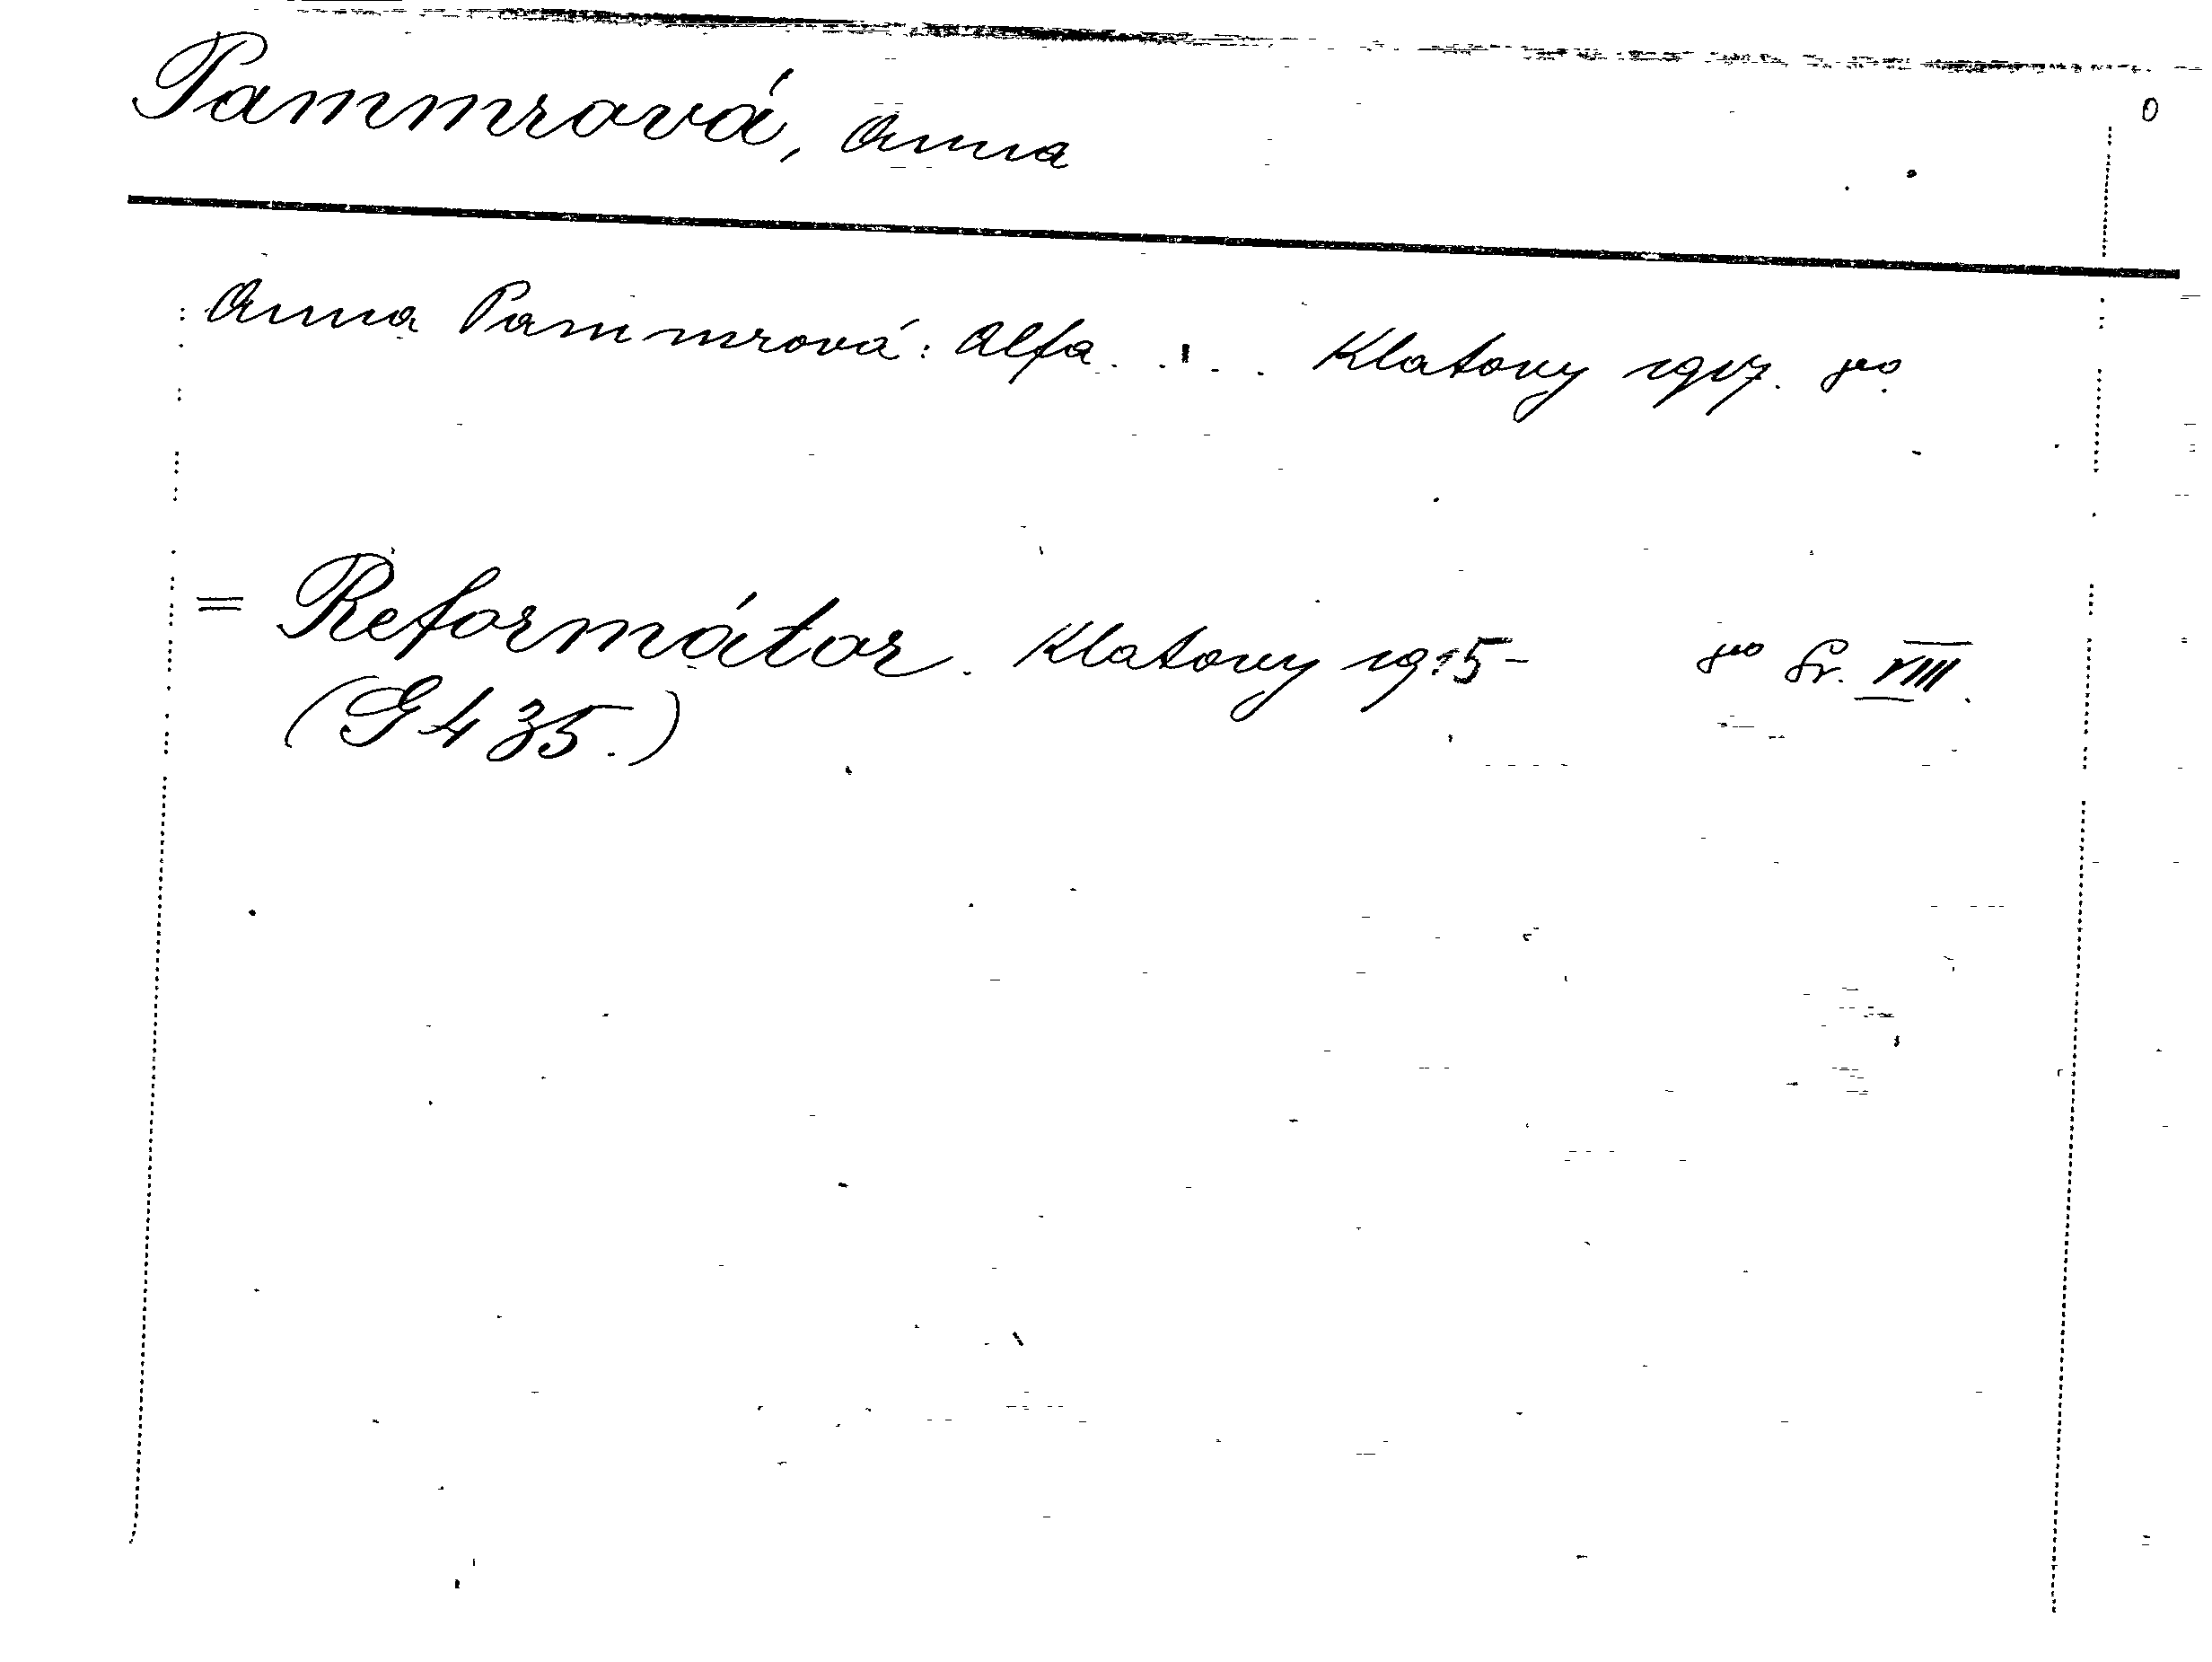 Pammrová, Anna
Anna Pammrová: Alfa. . . . Klatovy 1917. 8vo.
= Reformátor. Klatovy 1915- 8vo Sv. VIII.
(G 435.)